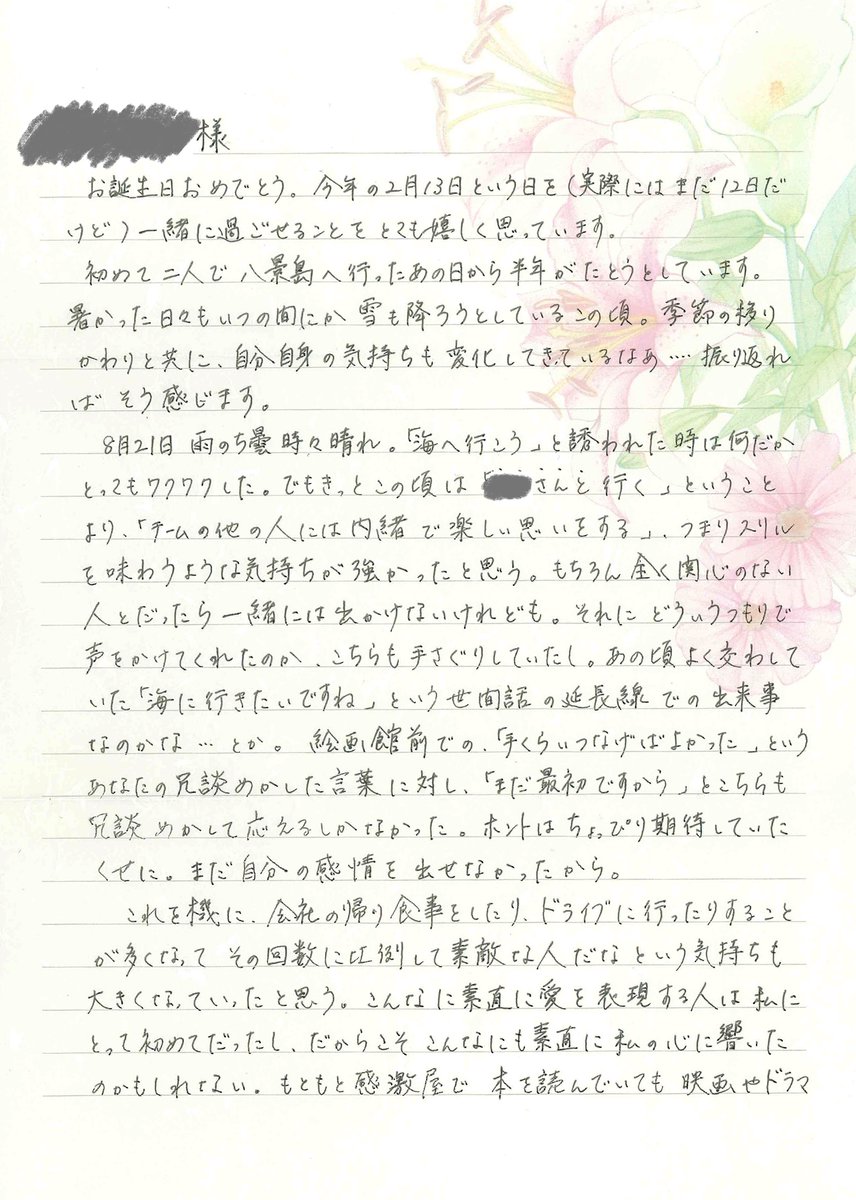 様
お誕生日おめでとう。今年の2月13日という日を(実際にはまだ12日だ
けど)一緒に過ごせることをとても嬉しく思っています。
初めて二人で八景島へ行ったあの日から半年がたとうとしています。
暑かった日々もいつの間にか雪も降ろうとしているこの頃。季節の移り
かわりと共に、自分自身の気持ちも変化してきているなあ‥‥振り返れ
ばそう感じます。
8月21日 雨のち曇時々晴れ。「海へ行こう」と誘われた時は何だか
とってもワクワクした。でもきっとこの頃は「さんと行く」ということ
より、「チームの他の人には内緒で楽しい思いをする」、つまりスリル
を味わうような気持ちが強かったと思う。もちろん全く関心のない
人とだったら一緒には出かけないけれども。それにどういうつもりで
声をかけてくれたのか、こちらも手さぐりしていたし。あの頃よく交わして
いた「海に行きたいですね」という世間話の延長線での出来事
なのかな…とか。絵画館前での、「手くらいつなげばよかった」という
あなたの冗談めかした言葉に対し、「まだ最初ですから」とこちらも
冗談めかして応えるしかなかった。ホントはちょっぴり期待していた
くせに。まだ自分の感情を出せなかったから。
これを機に、会社の帰り食事をしたり、ドライブに行ったりすること
が多くなって その回数に比例して素敵な人だなという気持ちも
大きくなっていったと思う。こんなに素直に愛を表現する人は私に
とって初めてだったし、だからこそこんなにも素直に私の心に響いた
のかもしれない。もともと感激屋で 本を読んでいても 映画やドラマ